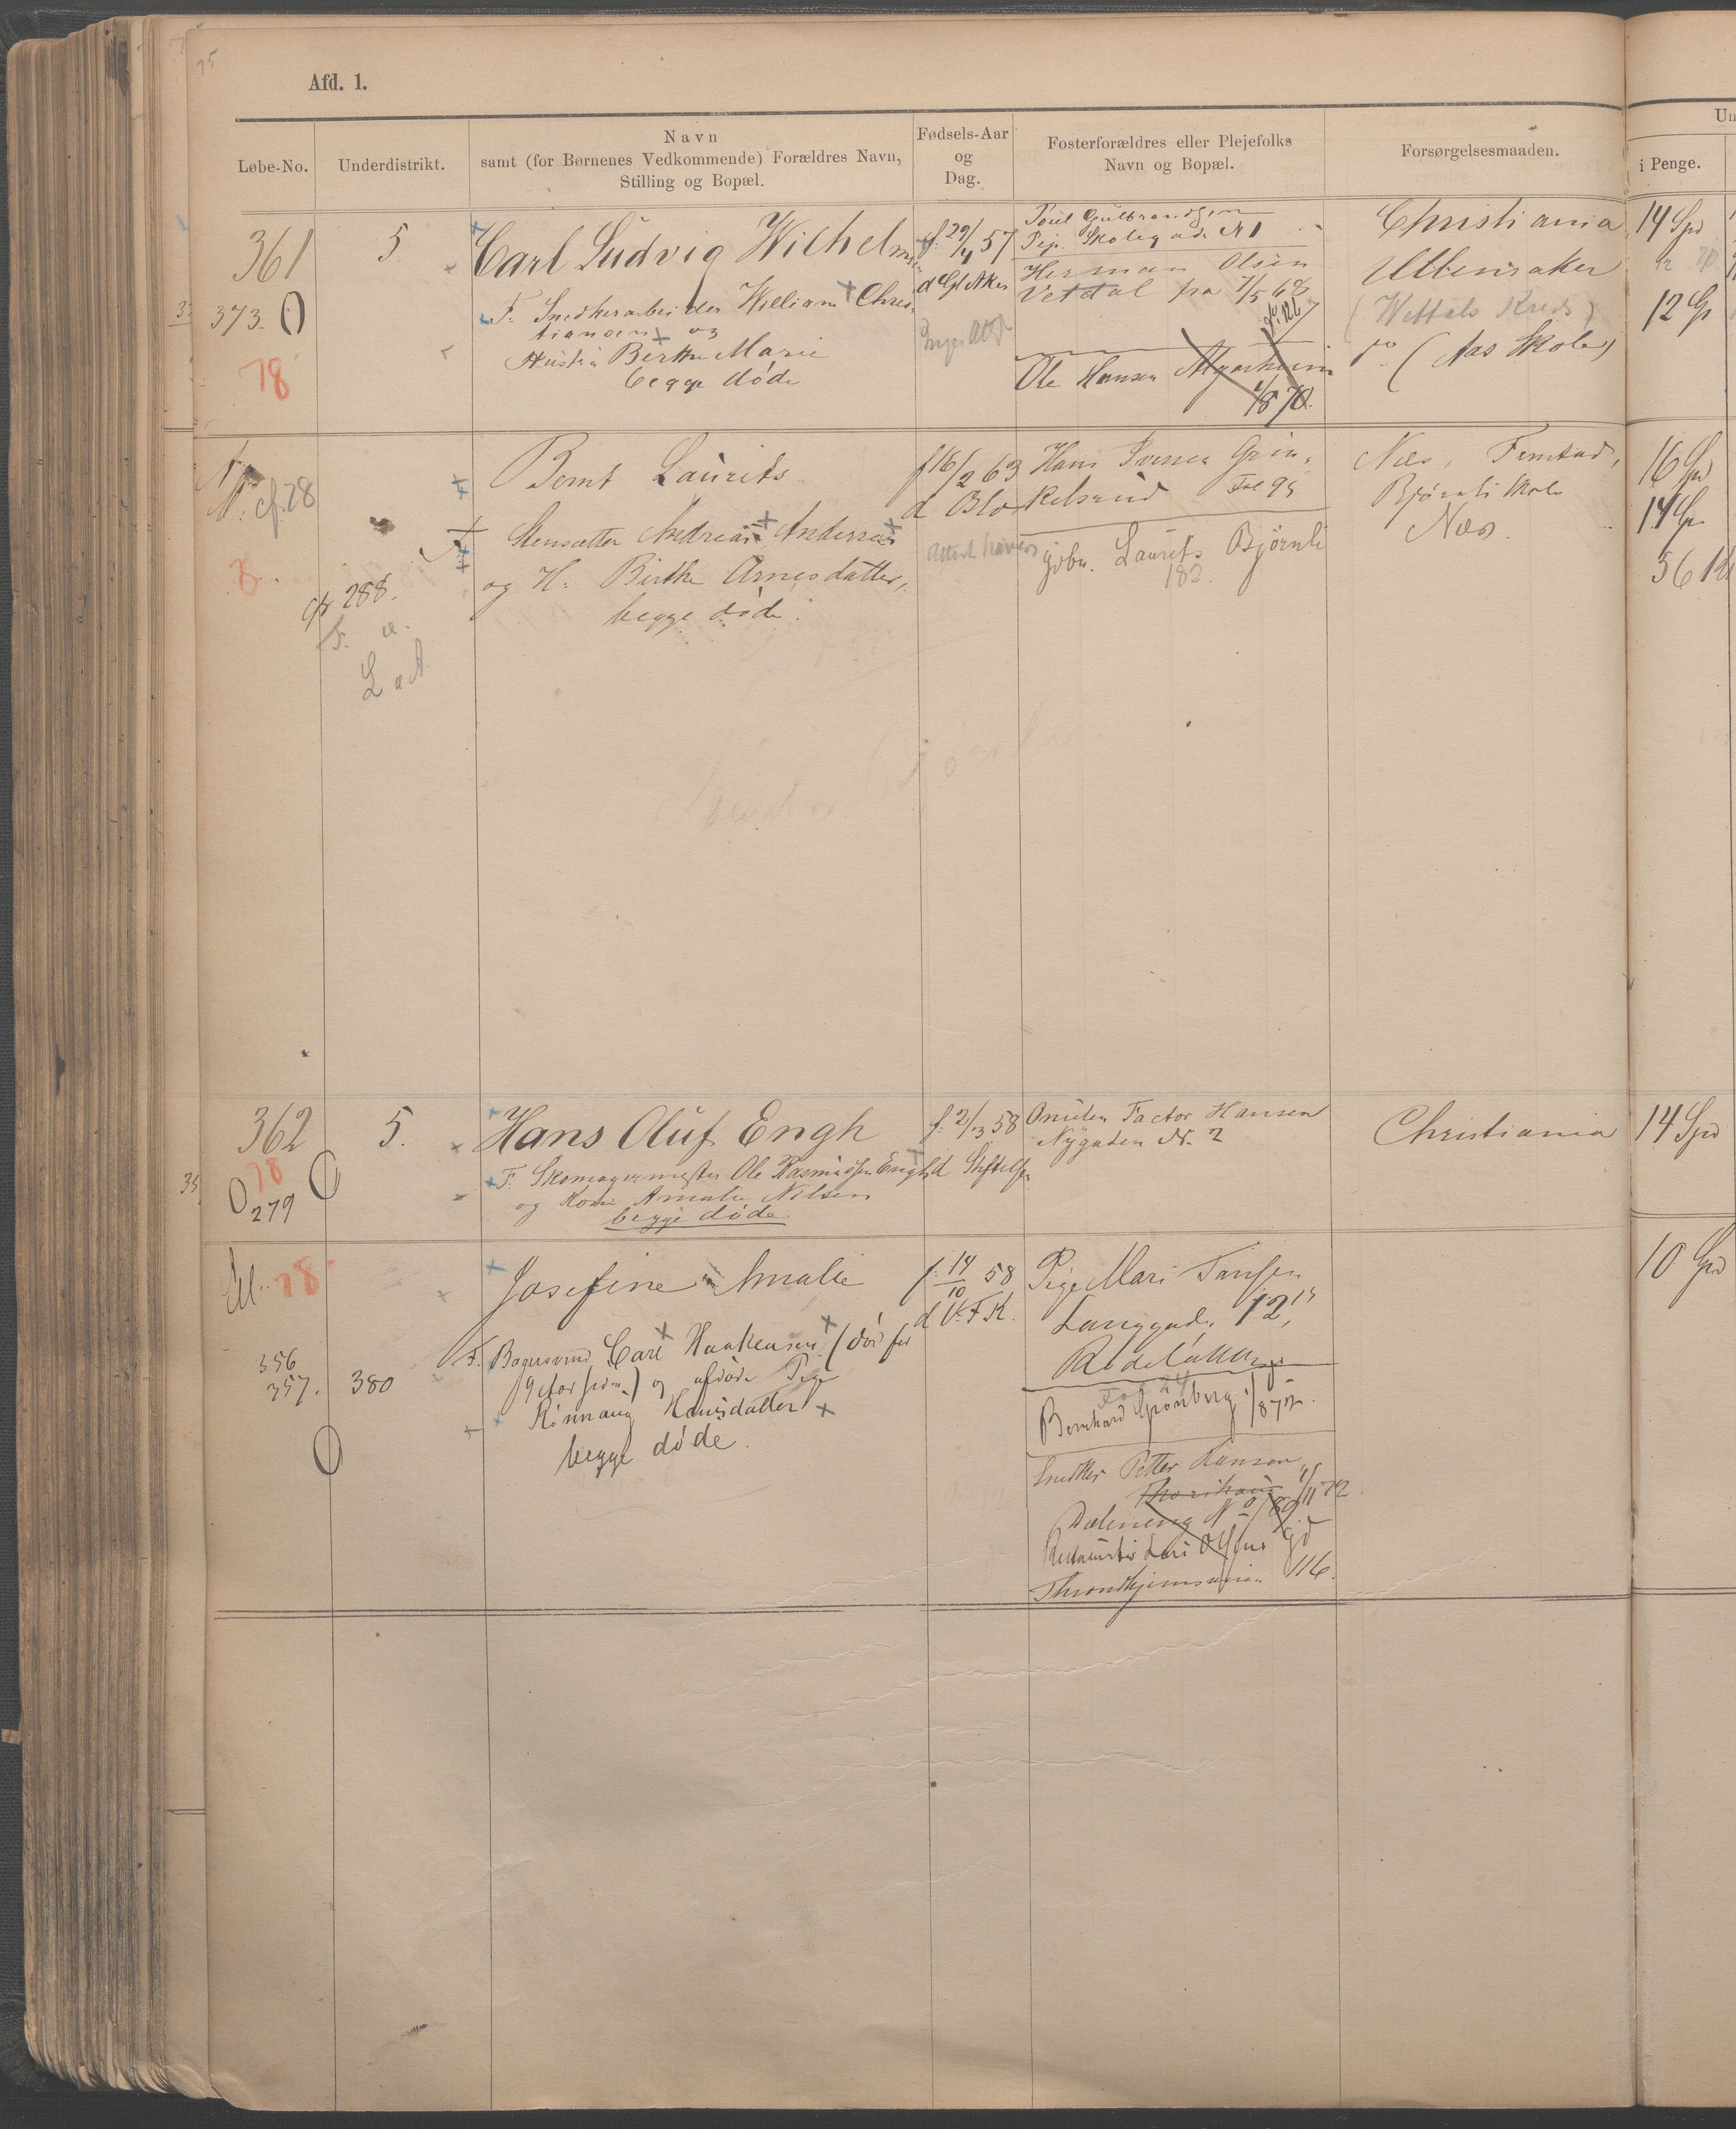 Afd. 1.
Løbe-No.
Underdistrikt.
Navn
samt (for Børnenes Vedkommende) Forældres Navn,
Stilling og Bopæl.
Fødsels-Aar
og
Dag.
Fosterforældres eller Plejefolks
Navn og Bopæl.
Forsørgelsesmaaden.
i Penge.
361
373.
78
5.
Carl Ludvig Wilhelmsen
F. Snedkerarbeider William Chris-
tiansen og
Hustru Berthe Marie
begge døde
f. 29/4 57
d Gl Aker
Poul Gulbrandsen
Skolegade N 1
Herman Olsen
Vetdal fra 1/5 68
Ole Hansen Algarheim
1/8 70.
Christiania
Ullensaker
(Wettals Kreds)
do (Aas Skole)
14 Spd
12 Sp
cf. 28
8.
cfr 288.
Bernt Laurits
Stensætter Andreas Andersen
og H. Birthe Arnesdatter,
begge døde.
f 16/2 63
Hans Iversen Grin-
kelsrud Fol 95
Gdbr. Laurits Bjørnli
182.
Næs, Fenstad,
Bjørnli Skole
Næs.
16 Spd
14 Sp.
56 Kr
362
78
279
5.
Hans Oluf Engh
F. Skomagermester Ole Rasmussen Engh
og Kone Amalie Nilsen
begge døde
f. 2/3 58
d Stiftelsen
Enken Factor Hansen
Nygaden N. 2
Christiania
14 Spd
78
356
357.
380
Josefine Amalie
F. Bagersvend Carl Haakensen (død for
9 Aar siden) og afdøde Pige
Rønnaug Hansdatter
begge døde.
f. 14/10 58
d V. F. K.
Pige Mari Jansen
Langgaden 12,
Rodeløkken
Fol 24
Bernhard Grønberg
Snedker Petter Hansen
1/11 72.
Dæleneng N
Throndhjemsveien 116.
10 Spd